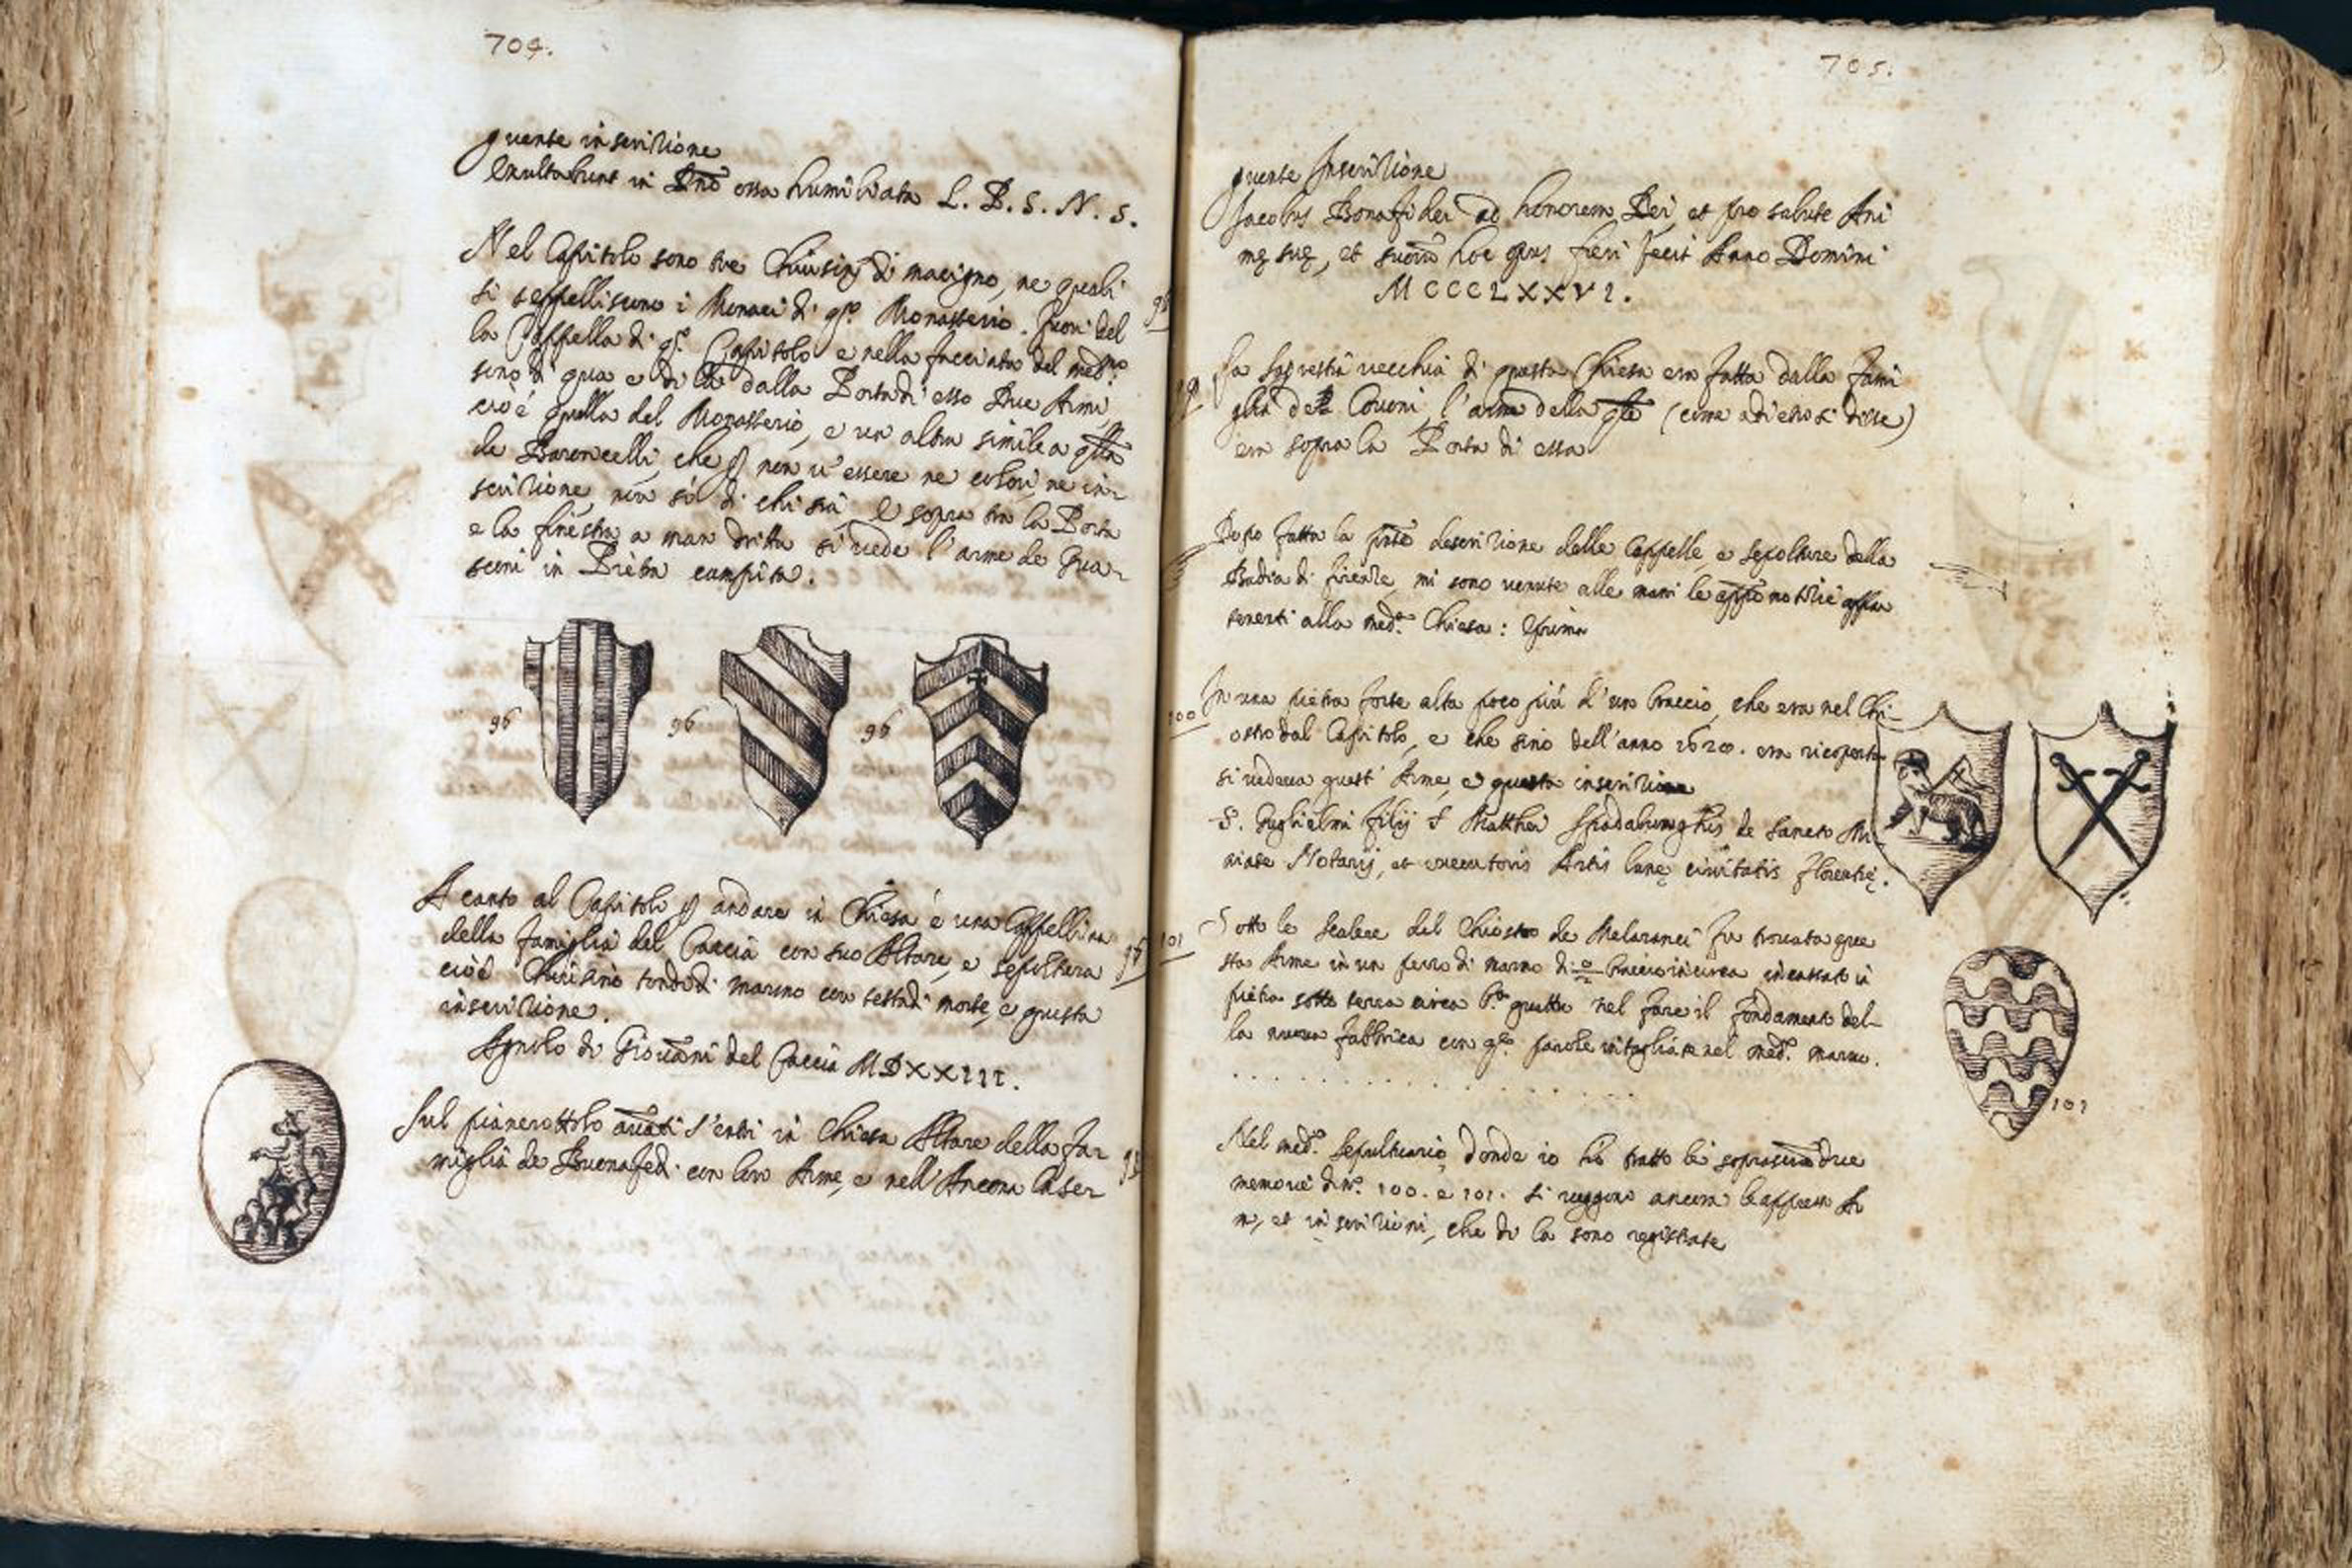 704.
guente inscrizione
Exultabunt in Dño ossa humiliata L. B. S. N. S.
Nel Capitolo sono tre Chiusini di macigno, ne quali
si seppelliscono i Monaci di qº. Monasterio. fuori del
la Cappella di qº. Capitolo e nella facciata del medmo.
sono di qua e di là dalla Porta di esso Due Armi,
cioè quella del Monasterio, e un altra simile a qlla
de Baroncelli, che p non v'essere ne colori, ne in-
scrizione, non si sà di chi sia, e sopra tra la Porta
e la finestra a man dritta si vede l'arme de Gua-
sconi in Pietra
96
96
96
96
A canto al Capitolo p andare in Chiesa è una Cappellina
della famiglia del Caccia con suo Altare, e sepoltura
cioè Chiusino tondo di marmo con testa di morte, e questa
inscrizione.
Agnolo di Giovãni del Caccia MDXXIII.
97
Sul pianerottolo avãti s'entri in Chiesa Altare della fa-
miglia de Buonafedi con loro Arme, e nell'Ancona la se-
98
705.
guente Inscrizione
Jacobus Bonafidei ad honorem Dei, et pro salute Ani
mę suę, et suorũ hoc opus fieri fecit Anno Domini
MCCCLXXVI.
99
La Sagrestia vecchia di questa Chiesa era fatta dalla fami
glia de Covoni, l'arme della qle (come adietro si disse)
era sopra la Porta di essa
Dopo fatta la pñte descrizione delle Cappelle, e sepolture della
Badia di firenze, mi sono venute alle mani le appie notizie appar
tenenti alla meda. Chiesa: e prima
100
In una pietra forte alta poco più d'un braccio, che era nel Chi-
ostro dal Capitolo, e che sino dell'anno 1620. era ricoperta
si vedeva quest'Arme, e questa inscrizione
S. Guglielmi filij S Matthei Spadalunghis de Sancto Mi-
niate Notarij, et executoris Artis lanę civitatis florentię.
101
Sotto le scalere del Chiostro de Melaranci fu trovata que
sta Arme in un pezzo di marmo di braccio in circa incassato in
pietra sotto terra circa bra. quattro nel fare il fondamento del-
la nuova fabbrica con qte. parole intagliate nel medo. marmo.
. . . . . . . . . . . . . . . .
101
Nel medo. Sepultuario, donde io hò tratto le soprascritte due
memorie di No. 100. e 101. si veggono ancora le appresso Ar
mi, et inscrizioni, che di la sono registrate